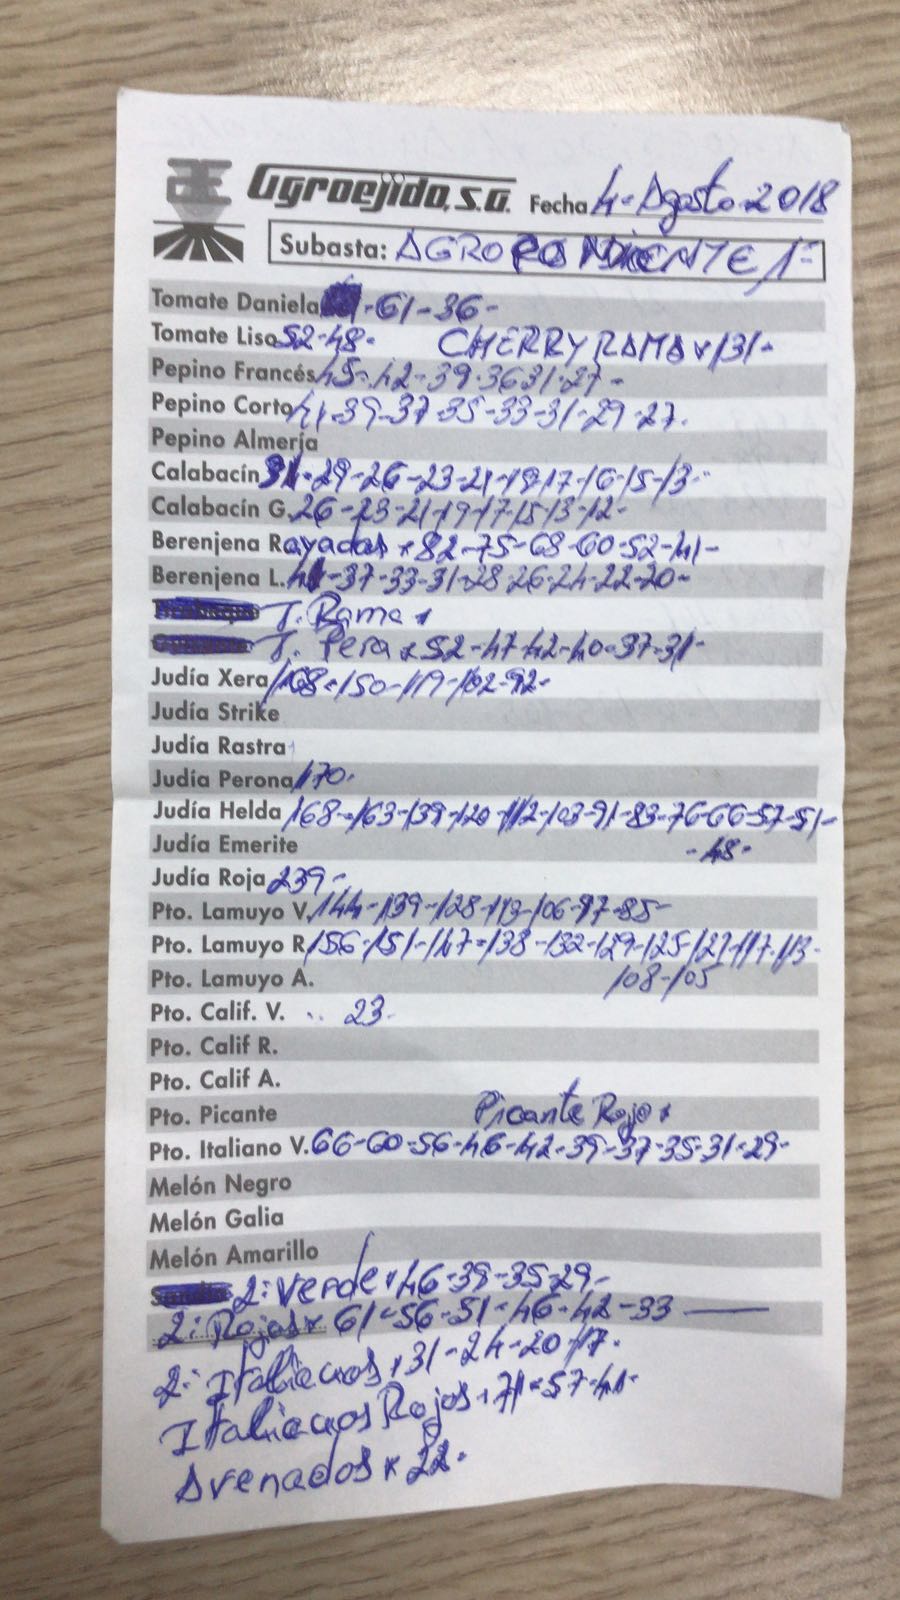 Agroejido, S.A. Fecha 4 - Agosto 2018
Subasta: AGROPONIENTE 1=
Tomate Daniela -61-36-
Tomate Liso 52-48- CHERRY RAMA x 131-
Pepino Francés 45-42-39-36 31-27-
Pepino Corto 41-39-37-35-33-31-29-27.
Pepino Almería
Calabacín 31-29-26-23-21-19-17-16-15-13-
Calabacín G. 26-23-21-19-17-15-13-12-
Berenjena Rayadas x 82-75-68-60-52-41-
Berenjena L. 41-37-33-31-28-26-24-22-20-
T. Rama x
T. Pera x 52-47-42-40-37-31-
Judía Xera 168-150-119-102-92-
Judía Strike
Judía Rastra
Judía Perona 170.
Judía Helda 168-163-139-120-112-103-91-83-76-66-57-51-
Judía Emerite -48-
Judía Roja 239-
Pto. Lamuyo V. 144-139-128-113-106-97-85-
Pto. Lamuyo R. 156-151-147-138-132-129-125-121-117-113-
Pto. Lamuyo A. 108-105
Pto. Calif. V. .. 23-
Pto. Calif R.
Pto. Calif A.
Pto. Picante Picante Rojo x
Pto. Italiano V. 66-60-56-46-42-39-37-35-31-29-
Melón Negro
Melón Galia
Melón Amarillo
2: Verde x 46-39-35-29-
2: Rojos x 61-56-51-46-42-33 —
2: Italianos x 31-24-20-17.
Italianos Rojos x 71-57-41-
Asurnados x 22-